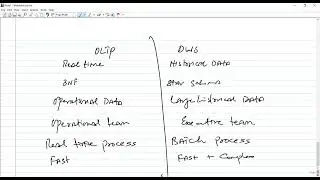 OLTP DWH
Real time Historical Data
3NF Star Schema
Operational Data Large Historical Data
Operational team Executive team
Real time process Batch process
Fast Fast + Complex